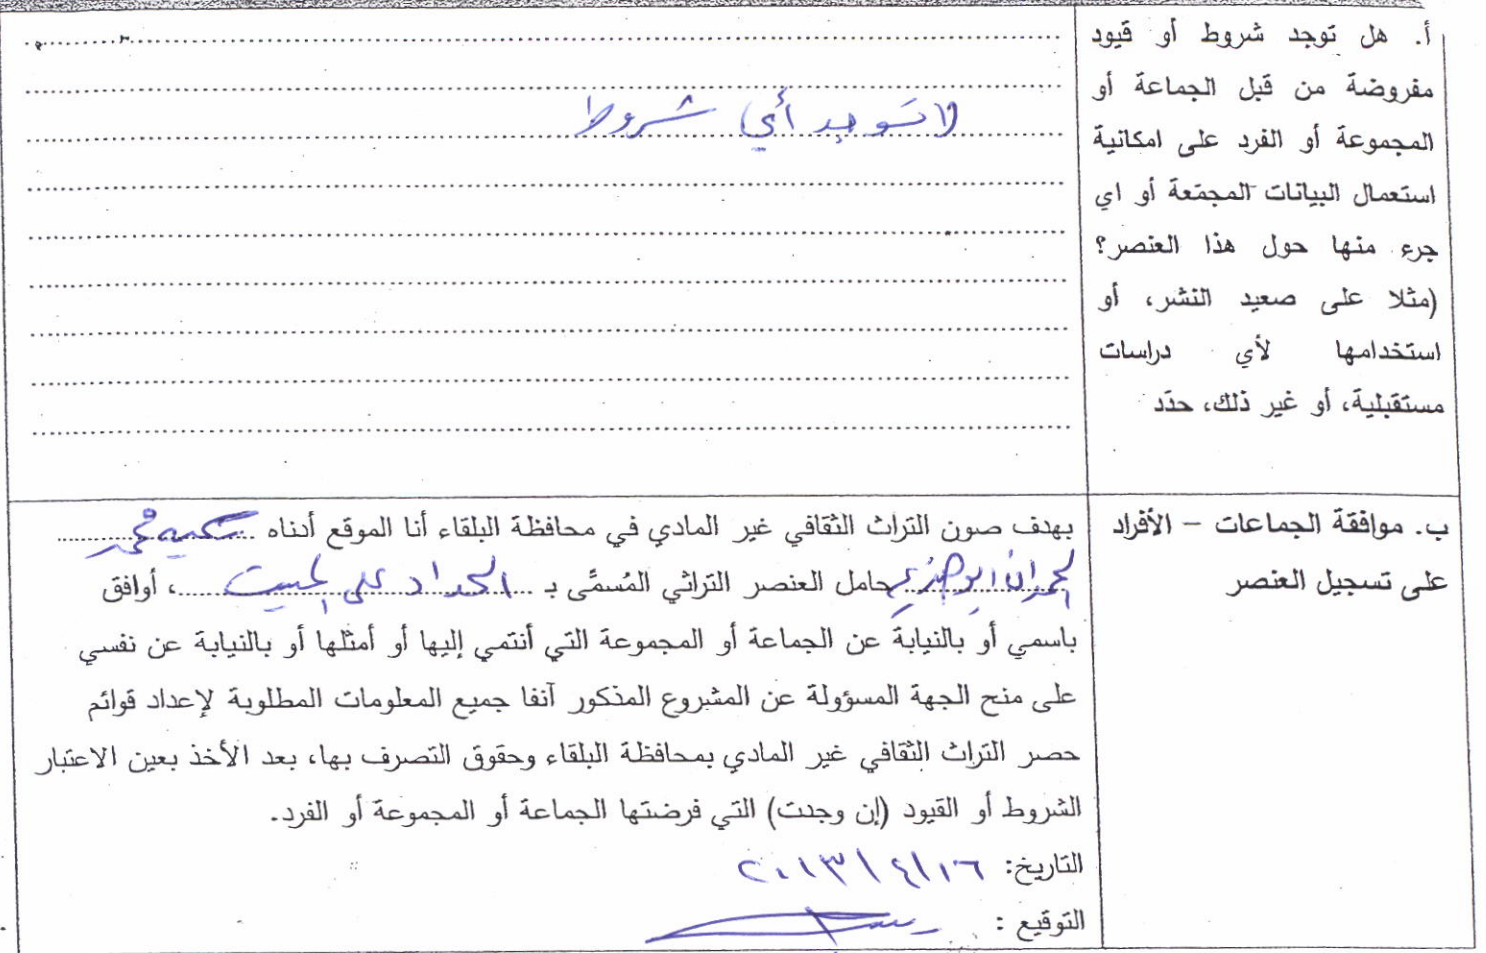 أ. هل توجد شروط أو قيود
مفروضة من قبل الجماعة أو
المجموعة أو الفرد على امكانية
استعمال البيانات المجمّعة أو اي
جرء منها حول هذا العنصر؟
(مثلا على صعيد النشر، أو
استخدامها لأي دراسات
مستقبلية، أو غير ذلك، حدّد
لا توجد أي شروط
ب. موافقة الجماعات – الأفراد
على تسجيل العنصر
بهدف صون التراث الثقافي غير المادي في محافظة البلقاء أنا الموقع أدناه
حامل العنصر التراثي المُسمَّى بـ الحداد على الميت، أوافق
باسمي أو بالنيابة عن الجماعة أو المجموعة التي أنتمي إليها أو أمثلها أو بالنيابة عن نفسي
على منح الجهة المسؤولة عن المشروع المذكور آنفا جميع المعلومات المطلوبة لإعداد قوائم
حصر التراث الثقافي غير المادي بمحافظة البلقاء وحقوق التصرف بها، بعد الأخذ بعين الاعتبار
الشروط أو القيود (إن وجدت) التي فرضتها الجماعة أو المجموعة أو الفرد.
التاريخ: ٢٠١٣/٤/١٦
التوقيع :